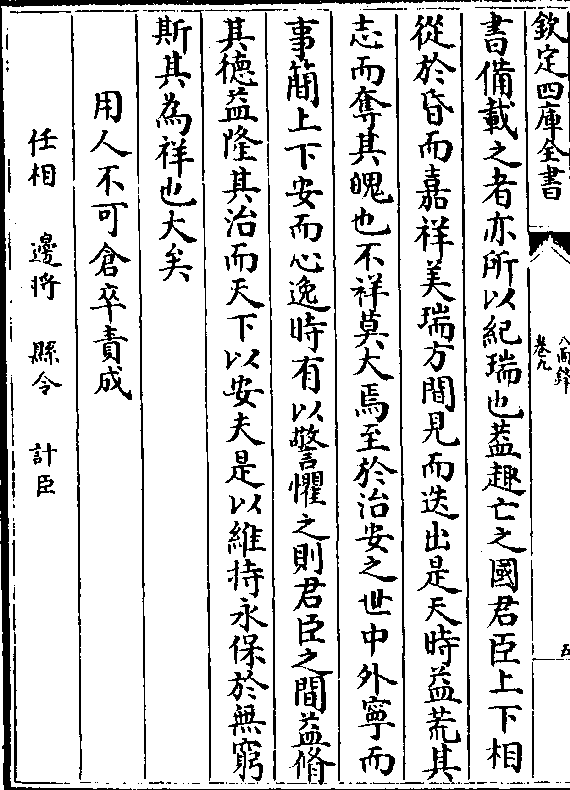 欽定四庫全書
八面鋒
卷九
五
書備載之者亦所以紀瑞也葢趣亡之國君臣上下相
從於昏而嘉祥美瑞方間見而迭出是天時益荒其
志而奪其魄也不祥莫大焉至於治安之世中外寧而
事簡上下安而心逸時有以警懼之則君臣之間益脩
其德益隆其治而天下以安夫是以維持永保於無窮
斯其為祥也大矣
用人不可倉卒責成
任相 邊將 縣令 計臣